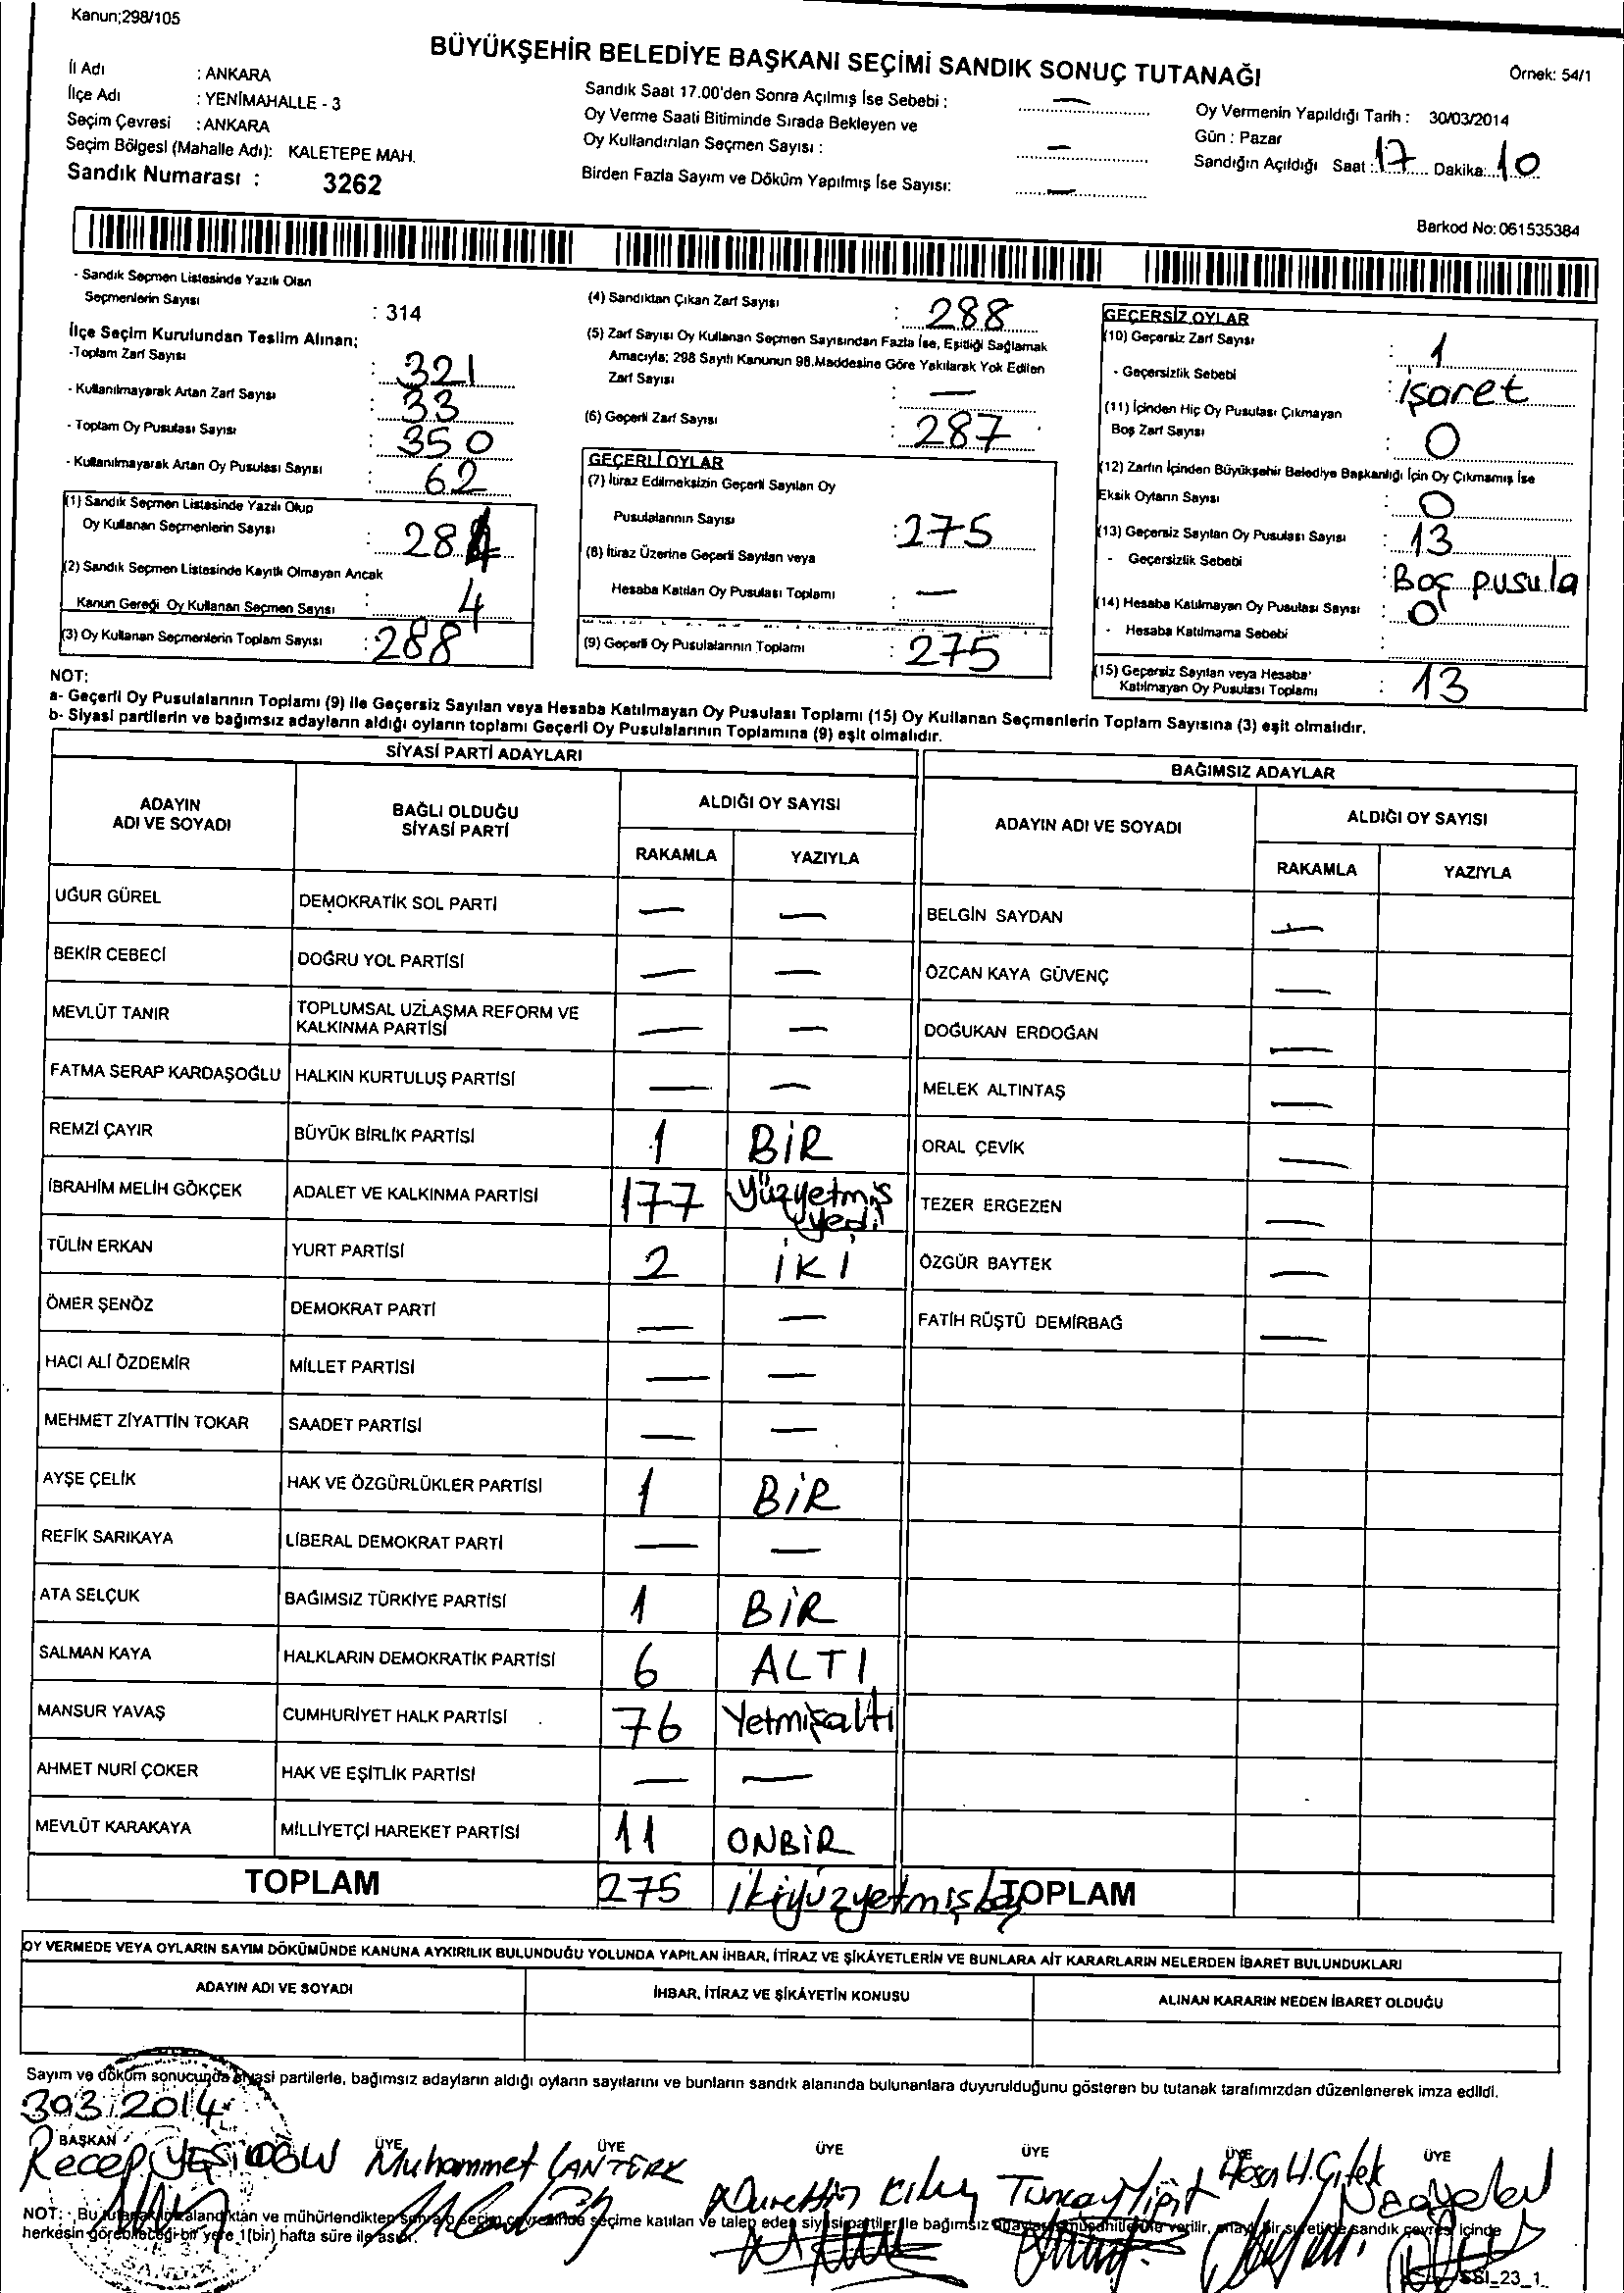 Kanun;298/105
BÜYÜKŞEHİR BELEDİYE BAŞKANI SEÇİMİ SANDIK SONUÇ TUTANAĞI
Örnek: 54/1
İl Adı : ANKARA
İlçe Adı : YENİMAHALLE - 3
Seçim Çevresi : ANKARA
Seçim Bölgesi (Mahalle Adı): KALETEPE MAH.
Sandık Numarası : 3262
Sandık Saat 17.00'den Sonra Açılmış İse Sebebi : —
Oy Verme Saati Bitiminde Sırada Bekleyen ve
Oy Kullandırılan Seçmen Sayısı : —
Birden Fazla Sayım ve Döküm Yapılmış İse Sayısı: —
Oy Vermenin Yapıldığı Tarih : 30/03/2014
Gün : Pazar
Sandığın Açıldığı Saat : 17 Dakika: 10
Barkod No: 061535384
- Sandık Seçmen Listesinde Yazılı Olan
Seçmenlerin Sayısı : 314
İlçe Seçim Kurulundan Teslim Alınan;
-Toplam Zarf Sayısı : 321
- Kullanılmayarak Artan Zarf Sayısı : 33
- Toplam Oy Pusulası Sayısı : 350
- Kullanılmayarak Artan Oy Pusulası Sayısı : 62
(1) Sandık Seçmen Listesinde Yazılı Olup
Oy Kullanan Seçmenlerin Sayısı : 284
(2) Sandık Seçmen Listesinde Kayıtlı Olmayan Ancak
Kanun Gereği Oy Kullanan Seçmen Sayısı : 4
(3) Oy Kullanan Seçmenlerin Toplam Sayısı : 288
(4) Sandıktan Çıkan Zarf Sayısı : 288
(5) Zarf Sayısı Oy Kullanan Seçmen Sayısından Fazla İse, Eşitliği Sağlamak
Amacıyla; 298 Sayılı Kanunun 98.Maddesine Göre Yakılarak Yok Edilen
Zarf Sayısı : —
(6) Geçerli Zarf Sayısı : 287
GEÇERLİ OYLAR
(7) İtiraz Edilmeksizin Geçerli Sayılan Oy
Pusulalarının Sayısı : 275
(8) İtiraz Üzerine Geçerli Sayılan veya
Hesaba Katılan Oy Pusulası Toplamı : —
(9) Geçerli Oy Pusulalarının Toplamı : 275
GEÇERSİZ OYLAR
(10) Geçersiz Zarf Sayısı : 1
- Geçersizlik Sebebi : işaret
(11) İçinden Hiç Oy Pusulası Çıkmayan
Boş Zarf Sayısı : 0
(12) Zarfın İçinden Büyükşehir Belediye Başkanlığı İçin Oy Çıkmamış İse
Eksik Oyların Sayısı : 0
(13) Geçersiz Sayılan Oy Pusulası Sayısı : 13
- Geçersizlik Sebebi : Boş pusula
(14) Hesaba Katılmayan Oy Pusulası Sayısı : 0
- Hesaba Katılmama Sebebi :
(15) Geçersiz Sayılan veya Hesaba
Katılmayan Oy Pusulası Toplamı : 13
NOT:
a- Geçerli Oy Pusulalarının Toplamı (9) ile Geçersiz Sayılan veya Hesaba Katılmayan Oy Pusulası Toplamı (15) Oy Kullanan Seçmenlerin Toplam Sayısına (3) eşit olmalıdır.
b- Siyasi partilerin ve bağımsız adayların aldığı oyların toplamı Geçerli Oy Pusulalarının Toplamına (9) eşit olmalıdır.
SİYASİ PARTİ ADAYLARI
ADAYIN ADI VE SOYADI BAĞLI OLDUĞU SİYASİ PARTİ ALDIĞI OY SAYISI
RAKAMLA YAZIYLA
UĞUR GÜREL DEMOKRATİK SOL PARTİ — —
BEKİR CEBECİ DOĞRU YOL PARTİSİ — —
MEVLÜT TANIR TOPLUMSAL UZLAŞMA REFORM VE KALKINMA PARTİSİ — —
FATMA SERAP KARDAŞOĞLU HALKIN KURTULUŞ PARTİSİ — —
REMZİ ÇAYIR BÜYÜK BİRLİK PARTİSİ 1 BİR
İBRAHİM MELİH GÖKÇEK ADALET VE KALKINMA PARTİSİ 177 Yüzyetmiş yedi
TÜLİN ERKAN YURT PARTİSİ 2 İKİ
ÖMER ŞENÖZ DEMOKRAT PARTİ — —
HACI ALİ ÖZDEMİR MİLLET PARTİSİ — —
MEHMET ZİYATTİN TOKAR SAADET PARTİSİ — —
AYŞE ÇELİK HAK VE ÖZGÜRLÜKLER PARTİSİ 1 BİR
REFİK SARIKAYA LİBERAL DEMOKRAT PARTİ — —
ATA SELÇUK BAĞIMSIZ TÜRKİYE PARTİSİ 1 BİR
SALMAN KAYA HALKLARIN DEMOKRATİK PARTİSİ 6 ALTI
MANSUR YAVAŞ CUMHURİYET HALK PARTİSİ 76 Yetmişaltı
AHMET NURİ ÇOKER HAK VE EŞİTLİK PARTİSİ — —
MEVLÜT KARAKAYA MİLLİYETÇİ HAREKET PARTİSİ 11 ONBİR
TOPLAM 275 ikiyüzyetmişbeş
BAĞIMSIZ ADAYLAR
ADAYIN ADI VE SOYADI ALDIĞI OY SAYISI
RAKAMLA YAZIYLA
BELGİN SAYDAN —
ÖZCAN KAYA GÜVENÇ —
DOĞUKAN ERDOĞAN —
MELEK ALTINTAŞ —
ORAL ÇEVİK —
TEZER ERGEZEN —
ÖZGÜR BAYTEK —
FATİH RÜŞTÜ DEMİRBAĞ —
TOPLAM
OY VERMEDE VEYA OYLARIN SAYIM DÖKÜMÜNDE KANUNA AYKIRILIK BULUNDUĞU YOLUNDA YAPILAN İHBAR, İTİRAZ VE ŞİKÂYETLERİN VE BUNLARA AİT KARARLARIN NELERDEN İBARET BULUNDUKLARI
ADAYIN ADI VE SOYADI İHBAR, İTİRAZ VE ŞİKÂYETİN KONUSU ALINAN KARARIN NEDEN İBARET OLDUĞU
Sayım ve döküm sonucunda siyasi partilerle, bağımsız adayların aldığı oyların sayılarını ve bunların sandık alanında bulunanlara duyurulduğunu gösteren bu tutanak tarafımızdan düzenlenerek imza edildi.
303.2014
BAŞKAN ÜYE ÜYE ÜYE ÜYE ÜYE ÜYE
Recep Muhammet CANTÜRK Nurettin Tuncay Yiğit Hasan H. Çiçek
NOT: Bu tutanak imzalandıktan ve mühürlendikten sonra seçim çevresinde seçime katılan ve talep eden siyasi partiler ile bağımsız adayların müşahitlerine verilir, onaylı bir sureti de sandık çevresi içinde
herkesin görebileceği bir yere 1(bir) hafta süre ile asılır.
SANDIK
SSI_23_1